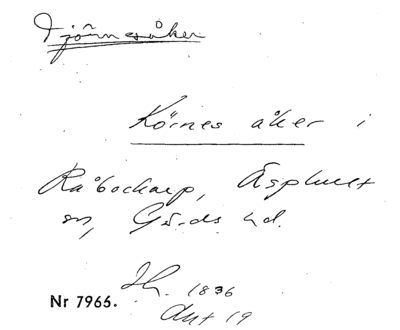 Tjörnesåker
Körnes åker i
Råbockarp, Äsphult
sn, Gärds hd.
1836
Nr 7965. Akt 19